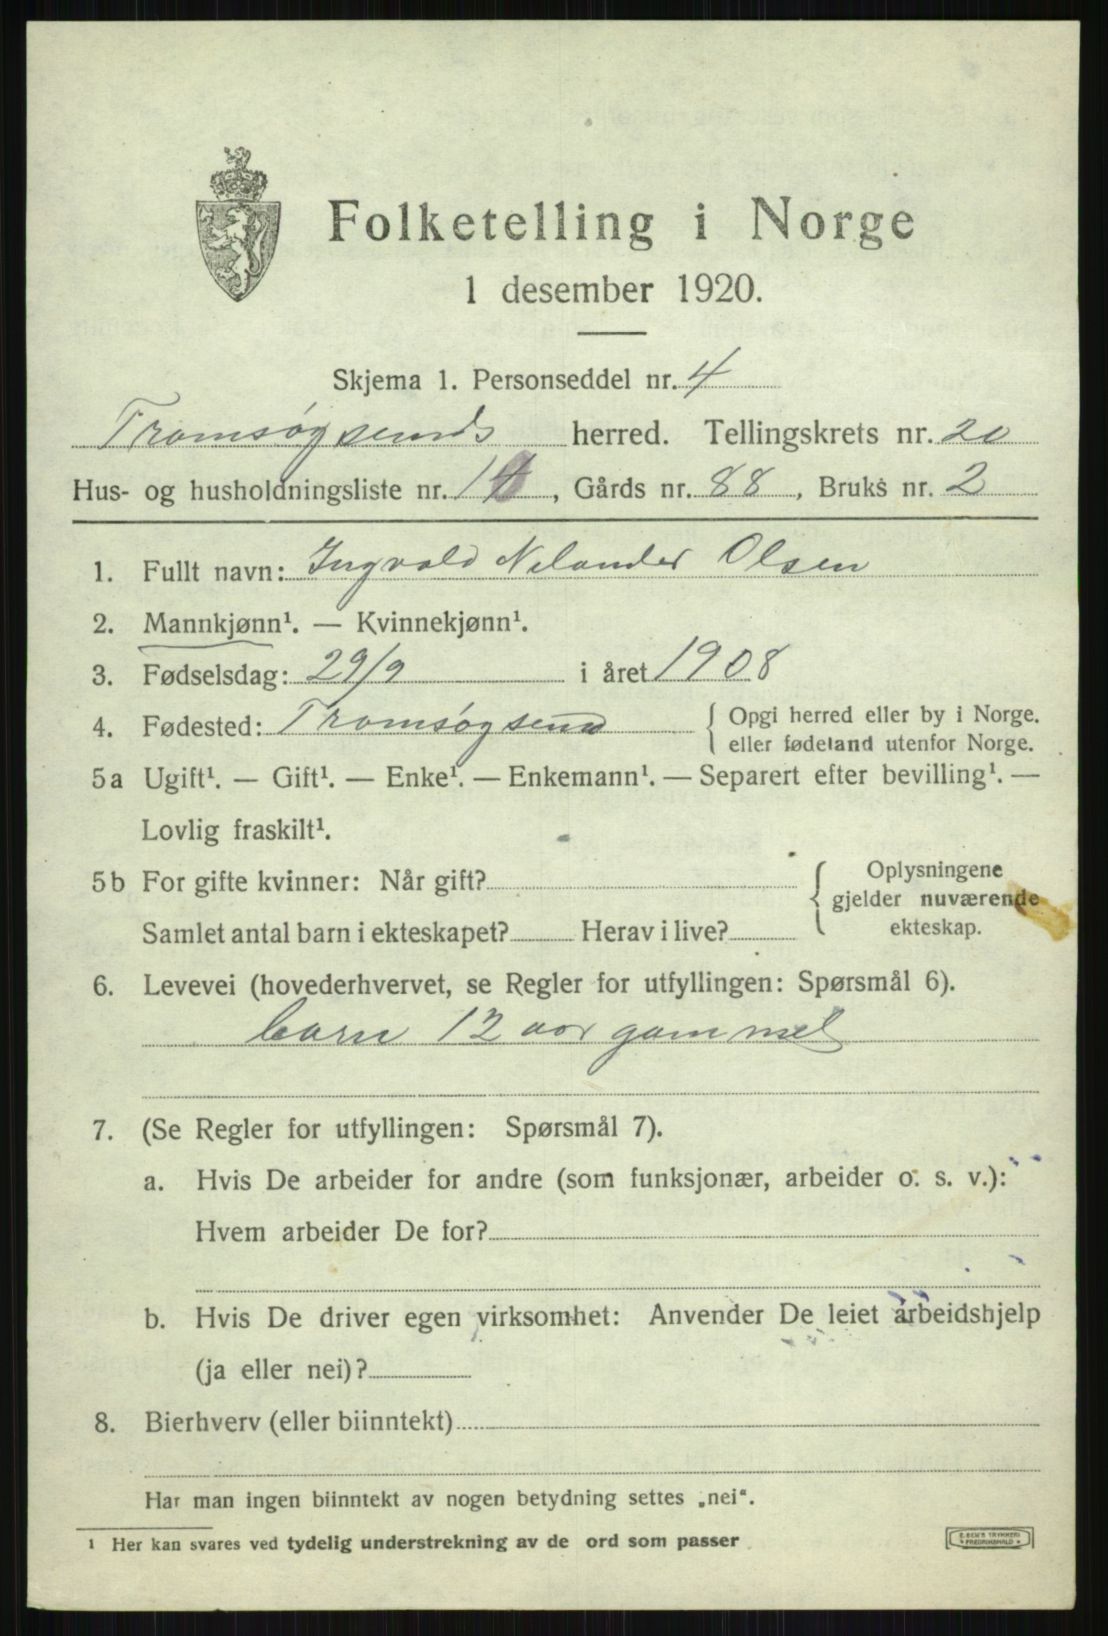 Folketelling i Norge
1 desember 1920.
Skjema 1. Personseddel nr. 4
Tromsøysunds herred. Tellingskrets nr. 20
Hus- og husholdningsliste nr. 1, Gårds nr. 88, Bruks nr. 2
1. Fullt navn: Ingvald Nelander Olsen
2. Mannkjønn¹. — Kvinnekjønn¹.
3. Fødselsdag: 29/9 i året 1908
4. Fødested: Tromsøysund { Opgi herred eller by i Norge.
eller fødeland utenfor Norge.
5a Ugift¹. — Gift¹. — Enke¹. — Enkemann¹. — Separert efter bevilling¹. —
Lovlig fraskilt¹.
5b For gifte kvinner: Når gift?
Samlet antal barn i ekteskapet? Herav i live?
{ Oplysningene
gjelder nuværende
ekteskap.
6. Levevei (hovederhvervet, se Regler for utfyllingen: Spørsmål 6).
barn 12 aar gammel
7. (Se Regler for utfyllingen: Spørsmål 7).
a. Hvis De arbeider for andre (som funksjonær, arbeider o. s. v.):
Hvem arbeider De for?
b. Hvis De driver egen virksomhet: Anvender De leiet arbeidshjelp
(ja eller nei)?
8. Bierhverv (eller biinntekt)
Har man ingen biinntekt av nogen betydning settes „nei“.
¹ Her kan svares ved tydelig understrekning av de ord som passer
TRYKKERI
FREDRIKSHALD